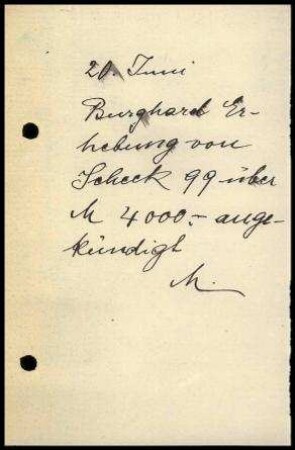 20. Juni
Burghard Er-
hebung von
Scheck 99 über
M 4000,- ange-
kündigt
M.